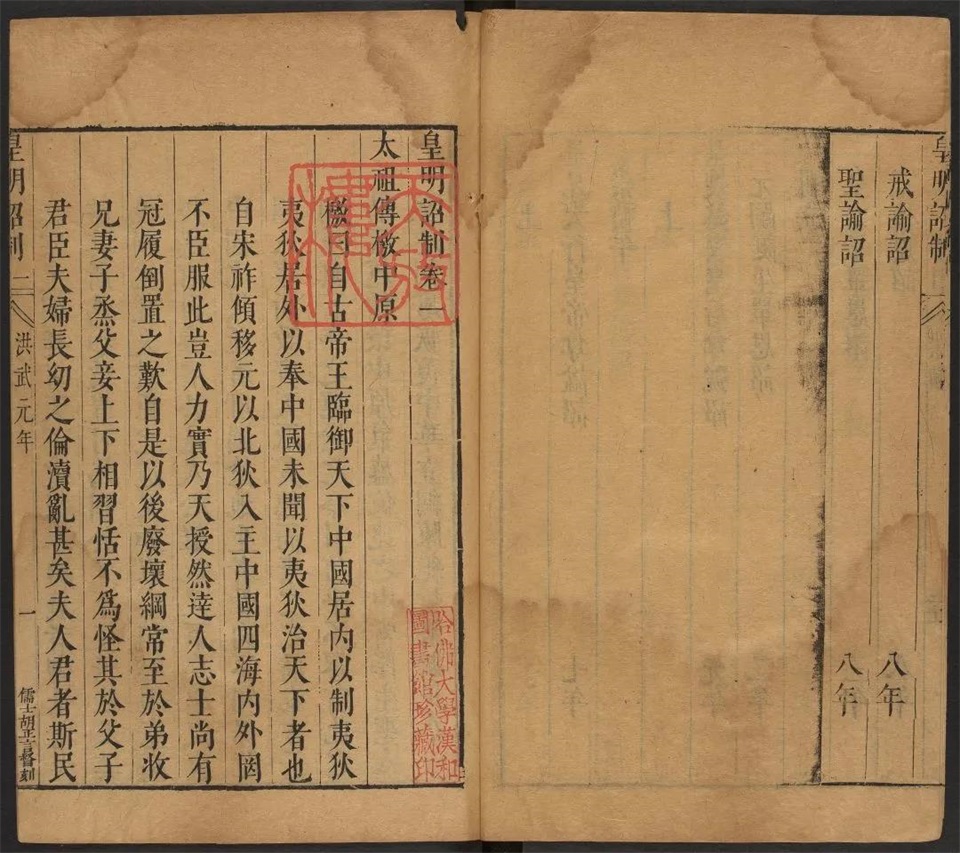 皇明詔制
戒諭詔 八年
聖諭詔 八年
皇明詔制卷一
太祖傳檄中原
檄曰自古帝王臨御天下中國居内以制夷狄
夷狄居外以奉中國未聞以夷狄治天下者也
自宋祚傾移元以北狄入主中國四海内外罔
不臣服此豈人力實乃天授然逹人志士尚有
冠履倒置之歎自是以後廢壞綱常至於弟收
兄妻子烝父妾上下相習恬不爲怪其於父子
君臣夫婦長幼之倫瀆亂甚矣夫人君者斯民
皇明詔制 洪武元年 一 儒士胡正言督刻
哈佛大學漢和
圖書館珍藏印